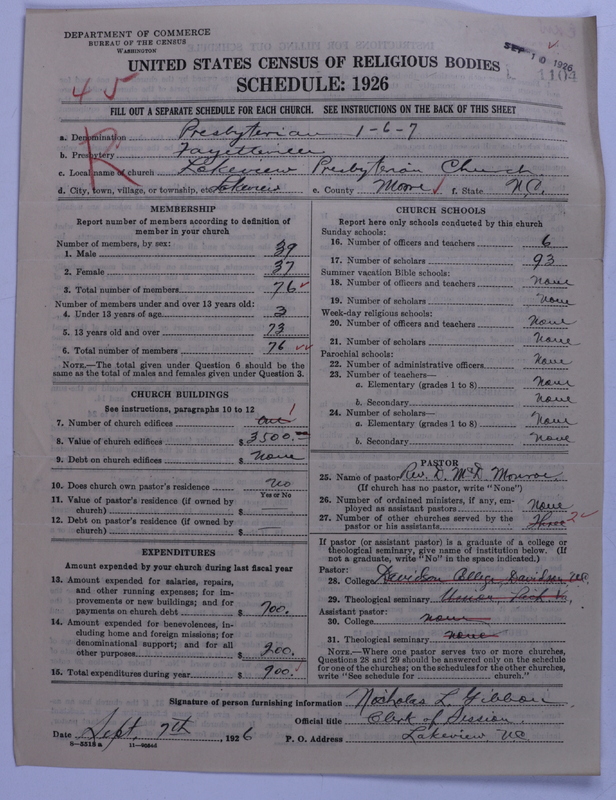 DEPARTMENT OF COMMERCE
BUREAU OF THE CENSUS
WASHINGTON
SEP 10 1926
1104
UNITED STATES CENSUS OF RELIGIOUS BODIES
SCHEDULE: 1926
45
FILL OUT A SEPARATE SCHEDULE FOR EACH CHURCH. SEE INSTRUCTIONS ON THE BACK OF THIS SHEET
R
a. Denomination Presbyterian 1-6-7
b. Presbytery Fayetteville
c. Local name of church Lakeview Presbyterian Church
d. City, town, village, or township, etc. Lakeview e. County Moore f. State N.C.
MEMBERSHIP
Report number of members according to definition of
member in your church
Number of members, by sex:
1. Male 39
2. Female 37
3. Total number of members 76
Number of members under and over 13 years old:
4. Under 13 years of age 3
5. 13 years old and over 73
6. Total number of members 76
NOTE.—The total given under Question 6 should be
same as the total of males and females given under Question 3.
CHURCH BUILDINGS
See instructions, paragraphs 10 to 12
7. Number of church edifices one 1
8. Value of church edifices $ 3500.
9. Debt on church edifices $ None
10. Does church own pastor's residence No
Yes or No
11. Value of pastor's residence (if owned by
church) $
12. Debt on pastor's residence (if owned by
church) $
EXPENDITURES
Amount expended by your church during last fiscal year
13. Amount expended for salaries, repairs,
and other running expenses; for im-
provements or new buildings; and for
payments on church debt $ 700.
14. Amount expended for benevolences, in-
cluding home and foreign missions; for
denominational support; and for all
other purposes $ 200.
15. Total expenditures during year $ 900.
CHURCH SCHOOLS
Report here only schools conducted by this church
Sunday schools:
16. Number of officers and teachers 6
17. Number of scholars 93
Summer vacation Bible schools:
18. Number of officers and teachers None
19. Number of scholars None
Week-day religious schools:
20. Number of officers and teachers None
21. Number of scholars None
Parochial schools:
22. Number of administrative officers None
23. Number of teachers—
a. Elementary (grades 1 to 8) None
b. Secondary None
24. Number of scholars—
a. Elementary (grades 1 to 8) None
b. Secondary None
PASTOR
25. Name of pastor Rev. D. McD. Monroe
(If church has no pastor, write "None")
26. Number of ordained ministers, if any, em-
ployed as assistant pastors None
27. Number of other churches served by the
pastor or his assistants Three 3
If pastor (or assistant pastor) is a graduate of a college or
theological seminary, give name of institution below. (If
not a graduate, write "No" in the space indicated.)
Pastor:
28. College Davidson College Davidson N.C.
29. Theological seminary Union Va.
Assistant pastor:
30. College none
31. Theological seminary none
NOTE.—Where one pastor serves two or more churches,
Questions 28 and 29 should be answered only on the schedule
for one of the churches; on the schedules for the other churches,
write "See schedule for church."
Signature of person furnishing information Nicholas L. Gibbon
Official title Clerk of Session
Date Sept. 7th, 1926 P. O. Address Lakeview, N.C.